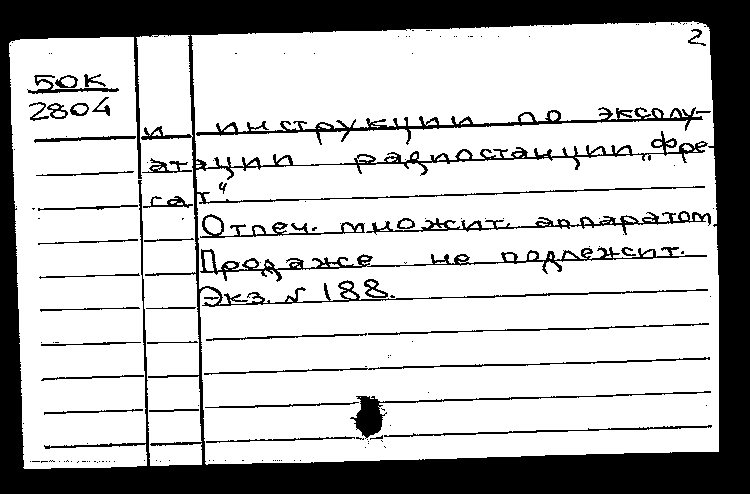 2
50К
2804
и инструкции по эксплу-
атации радиостанции „Фре-
гат".
Отпеч. множит. аппаратом.
Продаже не подлежит.
Экз. № 188.